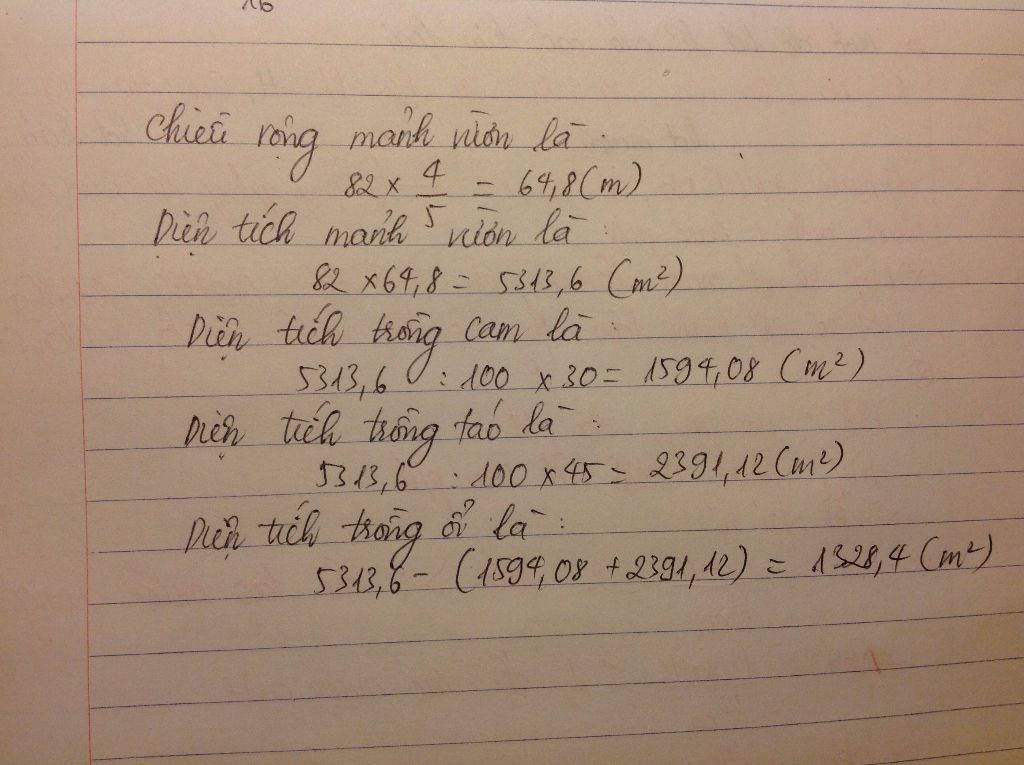 16
Chiều rộng mảnh vườn là:
82 x 4/5 = 64,8 (m)
Diện tích mảnh vườn là:
82 x 64,8 = 5313,6 (m²)
Diện tích trồng cam là:
5313,6 : 100 x 30 = 1594,08 (m²)
Diện tích trồng táo là:
5313,6 : 100 x 45 = 2391,12 (m²)
Diện tích trồng ổi là:
5313,6 - (1594,08 + 2391,12) = 1328,4 (m²)